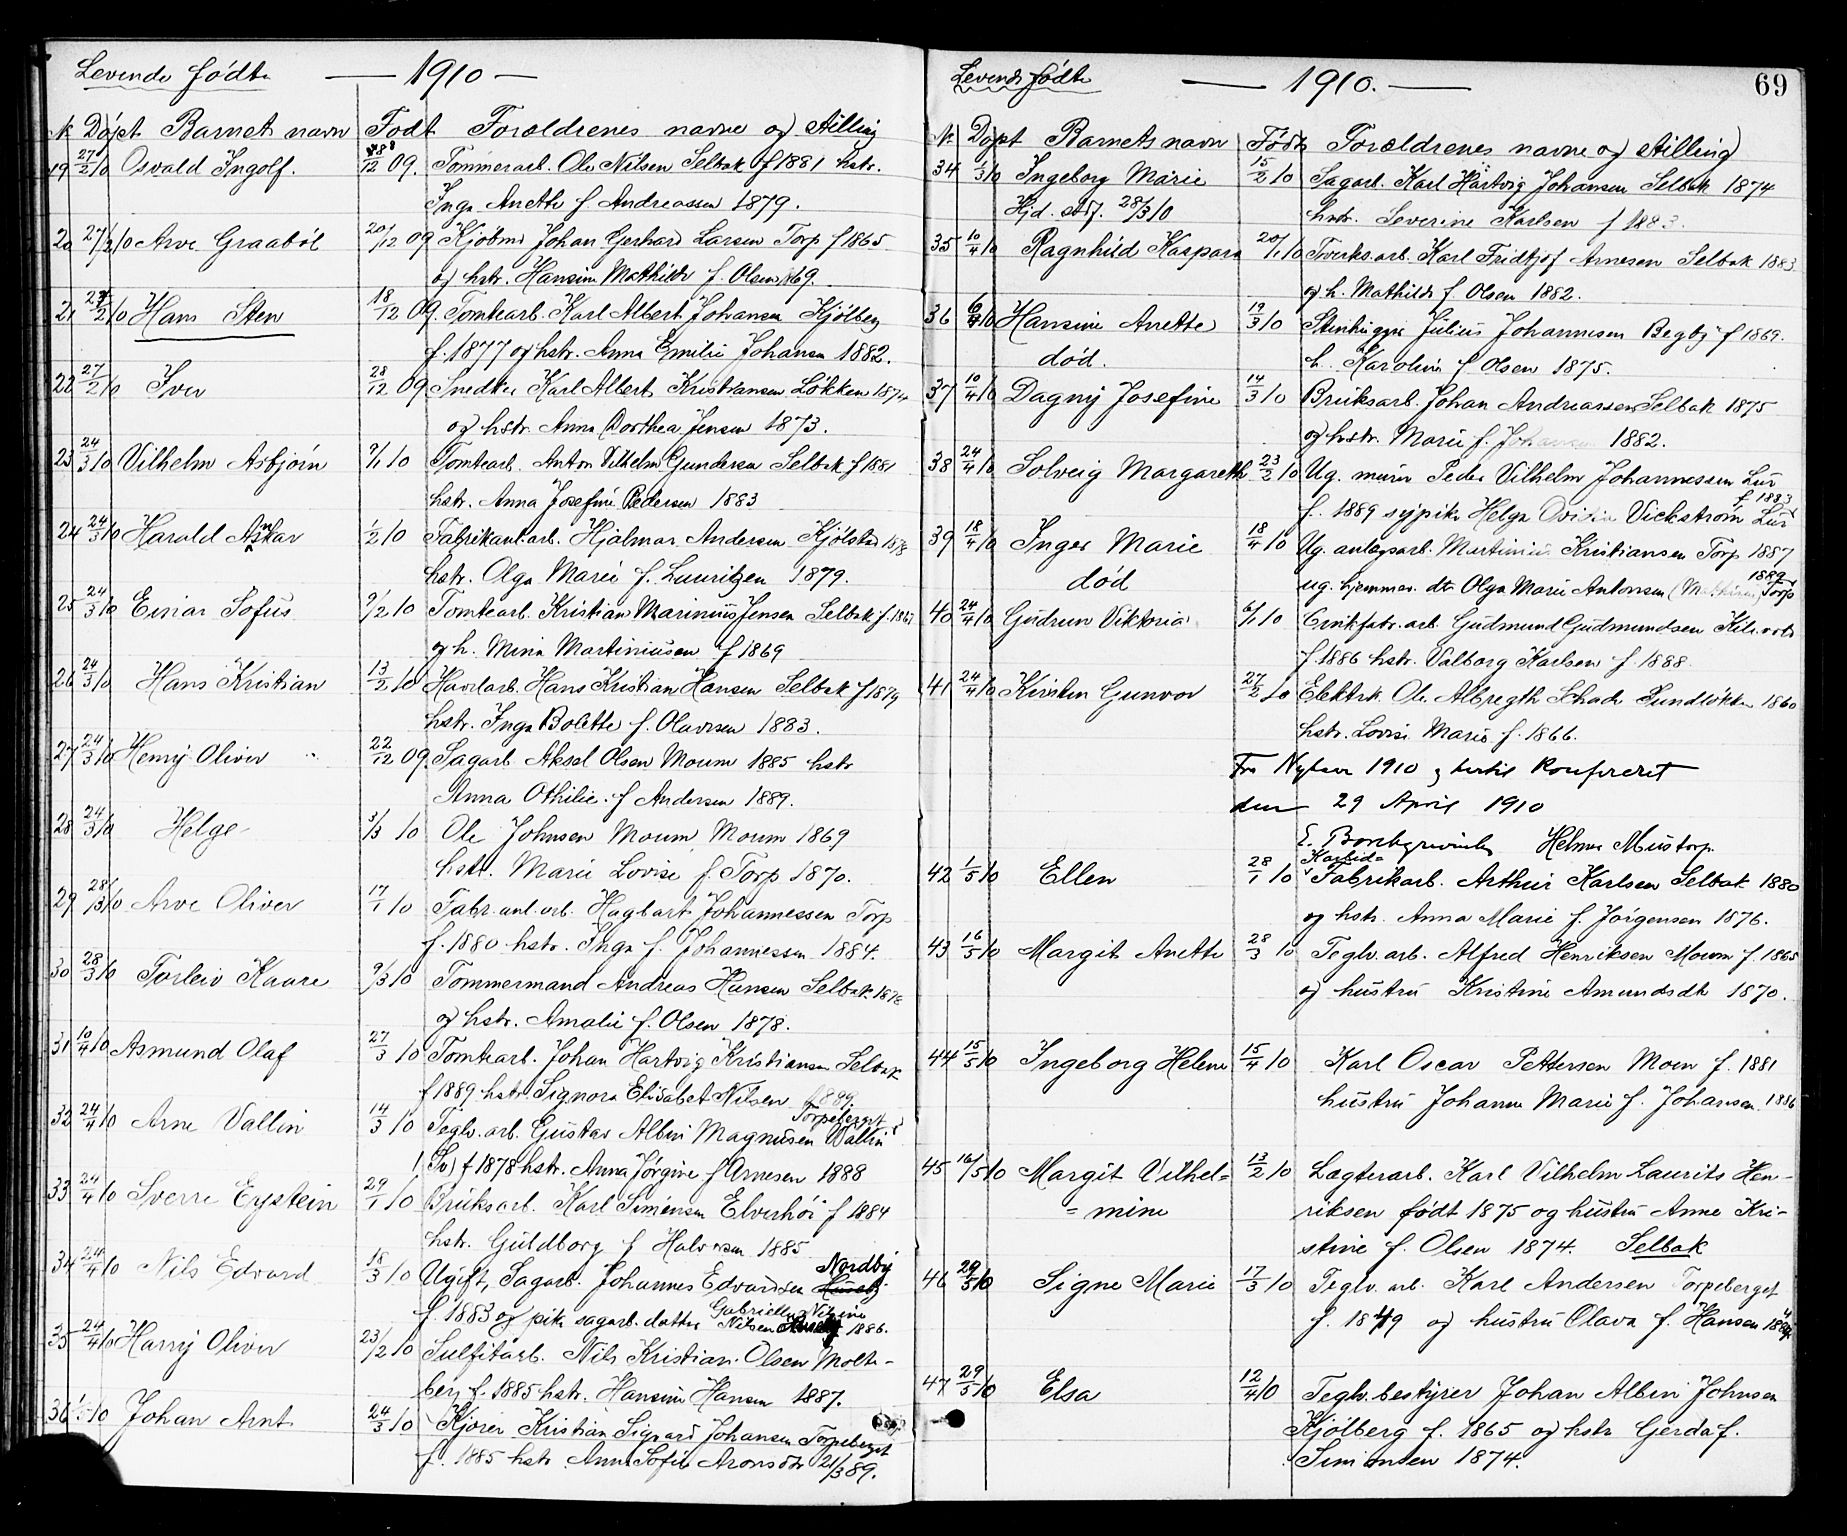 Levende fødte — 1910 —
N. Døpt Barnets navn Født Forældrenes navne og stilling
19 27/2 10 Osvald Ingolf. 28/12 09. Tømmerarb. Ole Nilsen Selbak f 1881 hstr.
Inga Anette f. Andreassen 1879.
20 27/2 10 Arve Graabøl 20/12 09 Kjøbmd Johan Gerhard Larsen Torp f 1865
og hstr. Hansine Mathilde f. Olsen 1869.
21 27/2 10 Hans Sten 18/12 09. Tomtearb. Karl Albert Johansen Kjølberg
f. 1877 og hstr. Anna Emilie Johansen 1882.
22 27/2 10 Iver 28/12 09 Snedker Karl Albert Kristiansen Løkken 1874
og hstr. Anna Dorthea Jensen 1873.
23 24/3 10 Vilhelm Asbjørn 9/1 10 Tomtearb. Anton Vilhelm Gundersen Selbak f 1881
hstr. Anna Josefine Pedersen 1883
24 24/3 10 Harald Anskar 1/2 10 Fabrikant.arb. Hjalmar Andersen Kjølstad 1878
hstr. Olga Marie f. Lauritzen 1879.
25 24/3 10 Einar Sofus 9/2 10 Tomtearb. Kristian Marinius Jensen Selbak f. 1867
og h. Mina Martiniusen f 1869
26 24/3 10 Hans Kristian 13/2 10 Høvelarb. Hans Kristian Hansen Selbak f 1879
hstr. Inga Bolette f. Olavesen 1883.
27 24/3 10 Henry Oliver 22/12 09. Sagarb. Aksel Olsen Moum 1885 hstr
Anna Othilie f Andersen 1889.
28 24/3 10 Helge 3/3 10 Ole Johnsen Moum, Moum 1869
hstr. Marie Lovise f. Torp 1870.
29 28/3 10 Arve Oliver 17/1 10 Fabr.anl.arb. Hagbart Johannessen Torp
f. 1880 hstr. Inga f. Johannessen 1884.
30 28/3 10 Torleiv Kaare 9/3 10 Tømmermand Andreas Hansen Selbak 1878
og hstr. Amalie f. Olsen 1878.
31 10/4 10 Asmund Olaf 27/3 10 Tomtearb. Johan Hartvig Kristiansen Selbak
f 1889 hstr. Signora Elisabet Nilsen 1889.
32 24/4 10 Arne Vallin 14/3 10 Teglv.arb. Gustav Albin Magnusen Vallin Torpeberget
(Sv) f 1878 hstr. Anna Jørgine f Arnesen 1888
33 24/4 10 Sverre Eystein 29/1 10 Bruksarb. Karl Simensen Elverhøi f 1884
hstr. Guldborg f Halvorsen 1885
34 24/4 10 Nils Edvard 18/3 10 Ugift, Sagarb. Johannes Edvardsen Nordby
f. 1883 og pike sagarb. datter Gabrielle Nilsine Nilsen 1886.
35 24/4 10 Harry Oliver 23/2 10 Sulfitarb. Nils Kristian Olsen Molte-
berg f. 1885 hstr. Hansine Hansen 1887.
36 1/5 10 Johan Arnt 24/3 10 Kjører Kristian Sigvard Johansen Torpeberget
f. 1885 hstr Anna Sofie Aronsdtr 21/3 89.
Levende fødte — 1910. — 69
N. Døpt Barnets navn Født Forældrenes navne og stilling
34 1/3 10 Ingeborg Marie 15/2 10 Sagarb. Karl Hartvig Johansen Selbak 1874
Hjd. st.f. 28/3 10 hstr. Severine Karlsen f 1883.
35 10/4 10 Ragnhild Kaspara 20/1 10 Tverks.arb. Karl Fridtjof Arnesen Selbak 1883
og h. Mathilde f Olsen 1882.
36 6/4 10 Hansine Anette 19/3 10 Stenhugger Julius Johannesen Begby f 1869.
død. h. Karoline f Olsen 1875.
37 10/4 10 Dagny Josefine 14/3 10 Bruksarb. Johan Andreassen Selbak 1875
og hstr. Marie f. Johansen 1882.
38 24/4 10 Solveig Margareth 23/2 10 Ug. murer Peder Vilhelm Johannessen Lur
f. 1889 sypike Helga Ovidia Vickstrøm Lur f 1883
39 18/4 10 Inger Marie 18/4 10 Ug. anlægsarb. Martinius Kristiansen Torp 1887
død ug. hjemmev. dtr Olga Marie Antonsen Torp 1889
40 24/4 10 Gudrun Viktoria 6/1 10 Gudmund Gudmundsen
f. 1886 hstr. Valborg Karlsen f. 1888.
41 24/4 10 Kirsten Gunvor 27/2 10 Elektrk. Ole Albregth Schade Sundløkken 1860
hstr. Lovise Marie f. 1866.
Fra Nytaar 1910 og hertil Konfereret
den 29 April 1910
E. Borchgrevink Helmer Mustorp.
42 1/5 10 Ellen 28/1 10 Karbid= Fabrikarb. Arthur Karlsen Selbak 1880
og hstr. Anna Marie f. Jørgensen 1876.
43 16/5 10 Margit Anette 28/3 10 Teglv.arb. Alfred Henriksen Moum f. 1865
og hustru Kristine Amundsdtr 1870.
44 15/5 10 Ingeborg Helene 15/4 10 Karl Oscar Pettersen Moen f. 1881
hustru Johanne Marie f. Johansen 1886
45 16/5 10 Margit Vilhel= 13/2 10 Lægterarb. Karl Vilhelm Laurits Hen-
=mine riksen født 1875 og hustru Anne Kri-
stine f. Olsen 1874. Selbak
46 29/5 10 Signe Marie 17/3 10 Teglv. arb. Karl Andersen Torpeberget
f. 1879 og hustru Olava f. Hansen
47 29/5 10 Elsa 12/4 10 Teglv.bestyrer Johan Albin Johnsen
Kjølberg f. 1865 og hstr Gerda f.
Simonsen 1874.